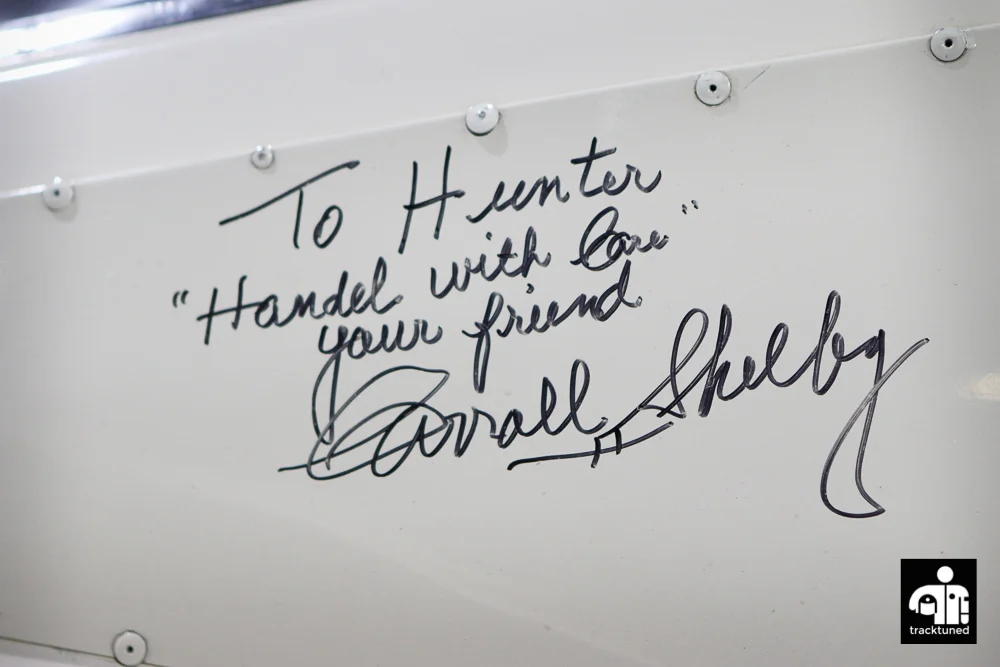 To Hunter
"Handel with Care"
your friend
Carroll Shelby
tracktuned